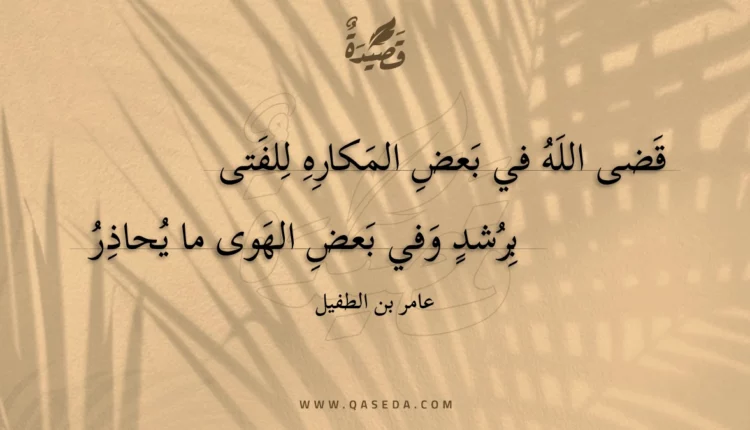 قَصِيْدَةٌ
قَضى اللَهُ في بَعضِ المَكارِهِ لِلفَتى
بِرُشدٍ وَفي بَعضِ الهَوى ما يُحاذِرُ
عامر بن الطفيل
WWW.QASEDA.COM